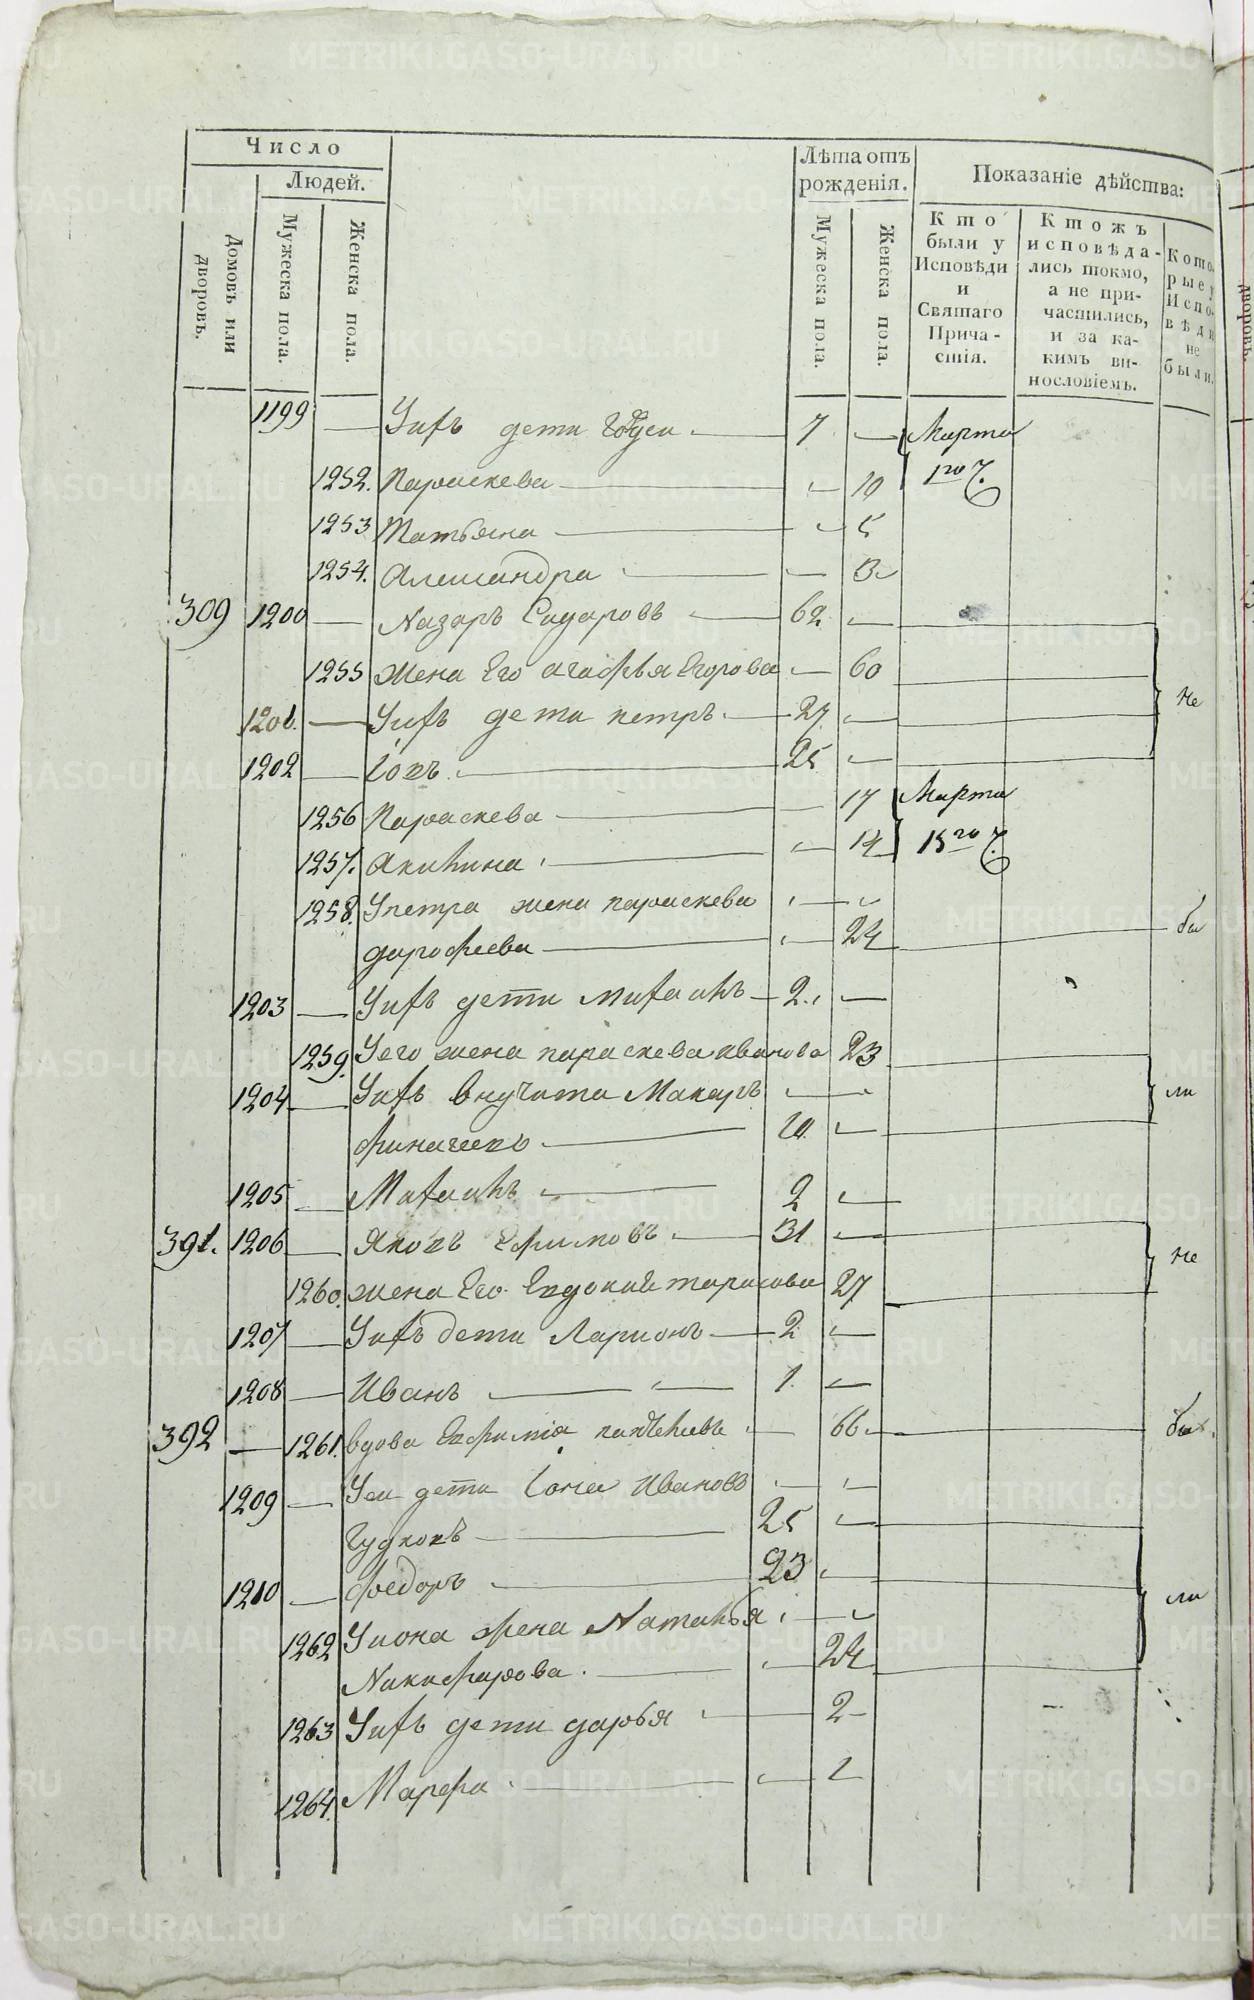 Число
Людей.
Домовъ или дворовъ.
Мужеска пола.
Женска пола.
Лѣта отъ рожденія.
Мужеска пола.
Женска пола.
Показаніе дѣйства:
Кто были у Исповѣди и Святаго Причастія.
Ктожъ исповѣдались токмо, а не причастились, и за какимъ винословіемъ.
Которые у Исповѣди не были.
1199 — Унихъ дети — 7 — Марта
1252. Параскева — 10 1го Ч.
1253 Татьяна — 5
1254. Александра — 3
309 1200 — Назаръ Сидаровъ — 62 —
1255 Жена Его агафья Егорова — 60
1201. — Унихъ дети петръ — 27 — не
1202 — Iовъ — 25 —
1256 Параскева — 17 Марта
1257. Акилина — 14 15го Ч.
1258. Упетра жена параскева
дарофеева — 24 бы
1203 — Унихъ дети Михаилъ — 2 —
1259. Уего жена параскева иванова 23
1204 — Унихъ внучата Макаръ — ли
— 10 —
1205 — Михаилъ — 2 —
391. 1206 — Яковъ Ефимовъ — 31 — не
1260. жена Его Евдокия тарасова 27
1207 — Унихъ дети Ларионъ — 2 —
1208 — Иванъ — 1 —
392 — 1261. вдова Евфимiя — 66 бы
1209 — Уеи дети Iона Ивановъ
Гудковъ — 25 —
1210 — федоръ — 23 — ли
1262 Уиона жена Наталья
Никифарова — 24
1263 Унихъ дети дарья — 2
1264. Марфа — 1